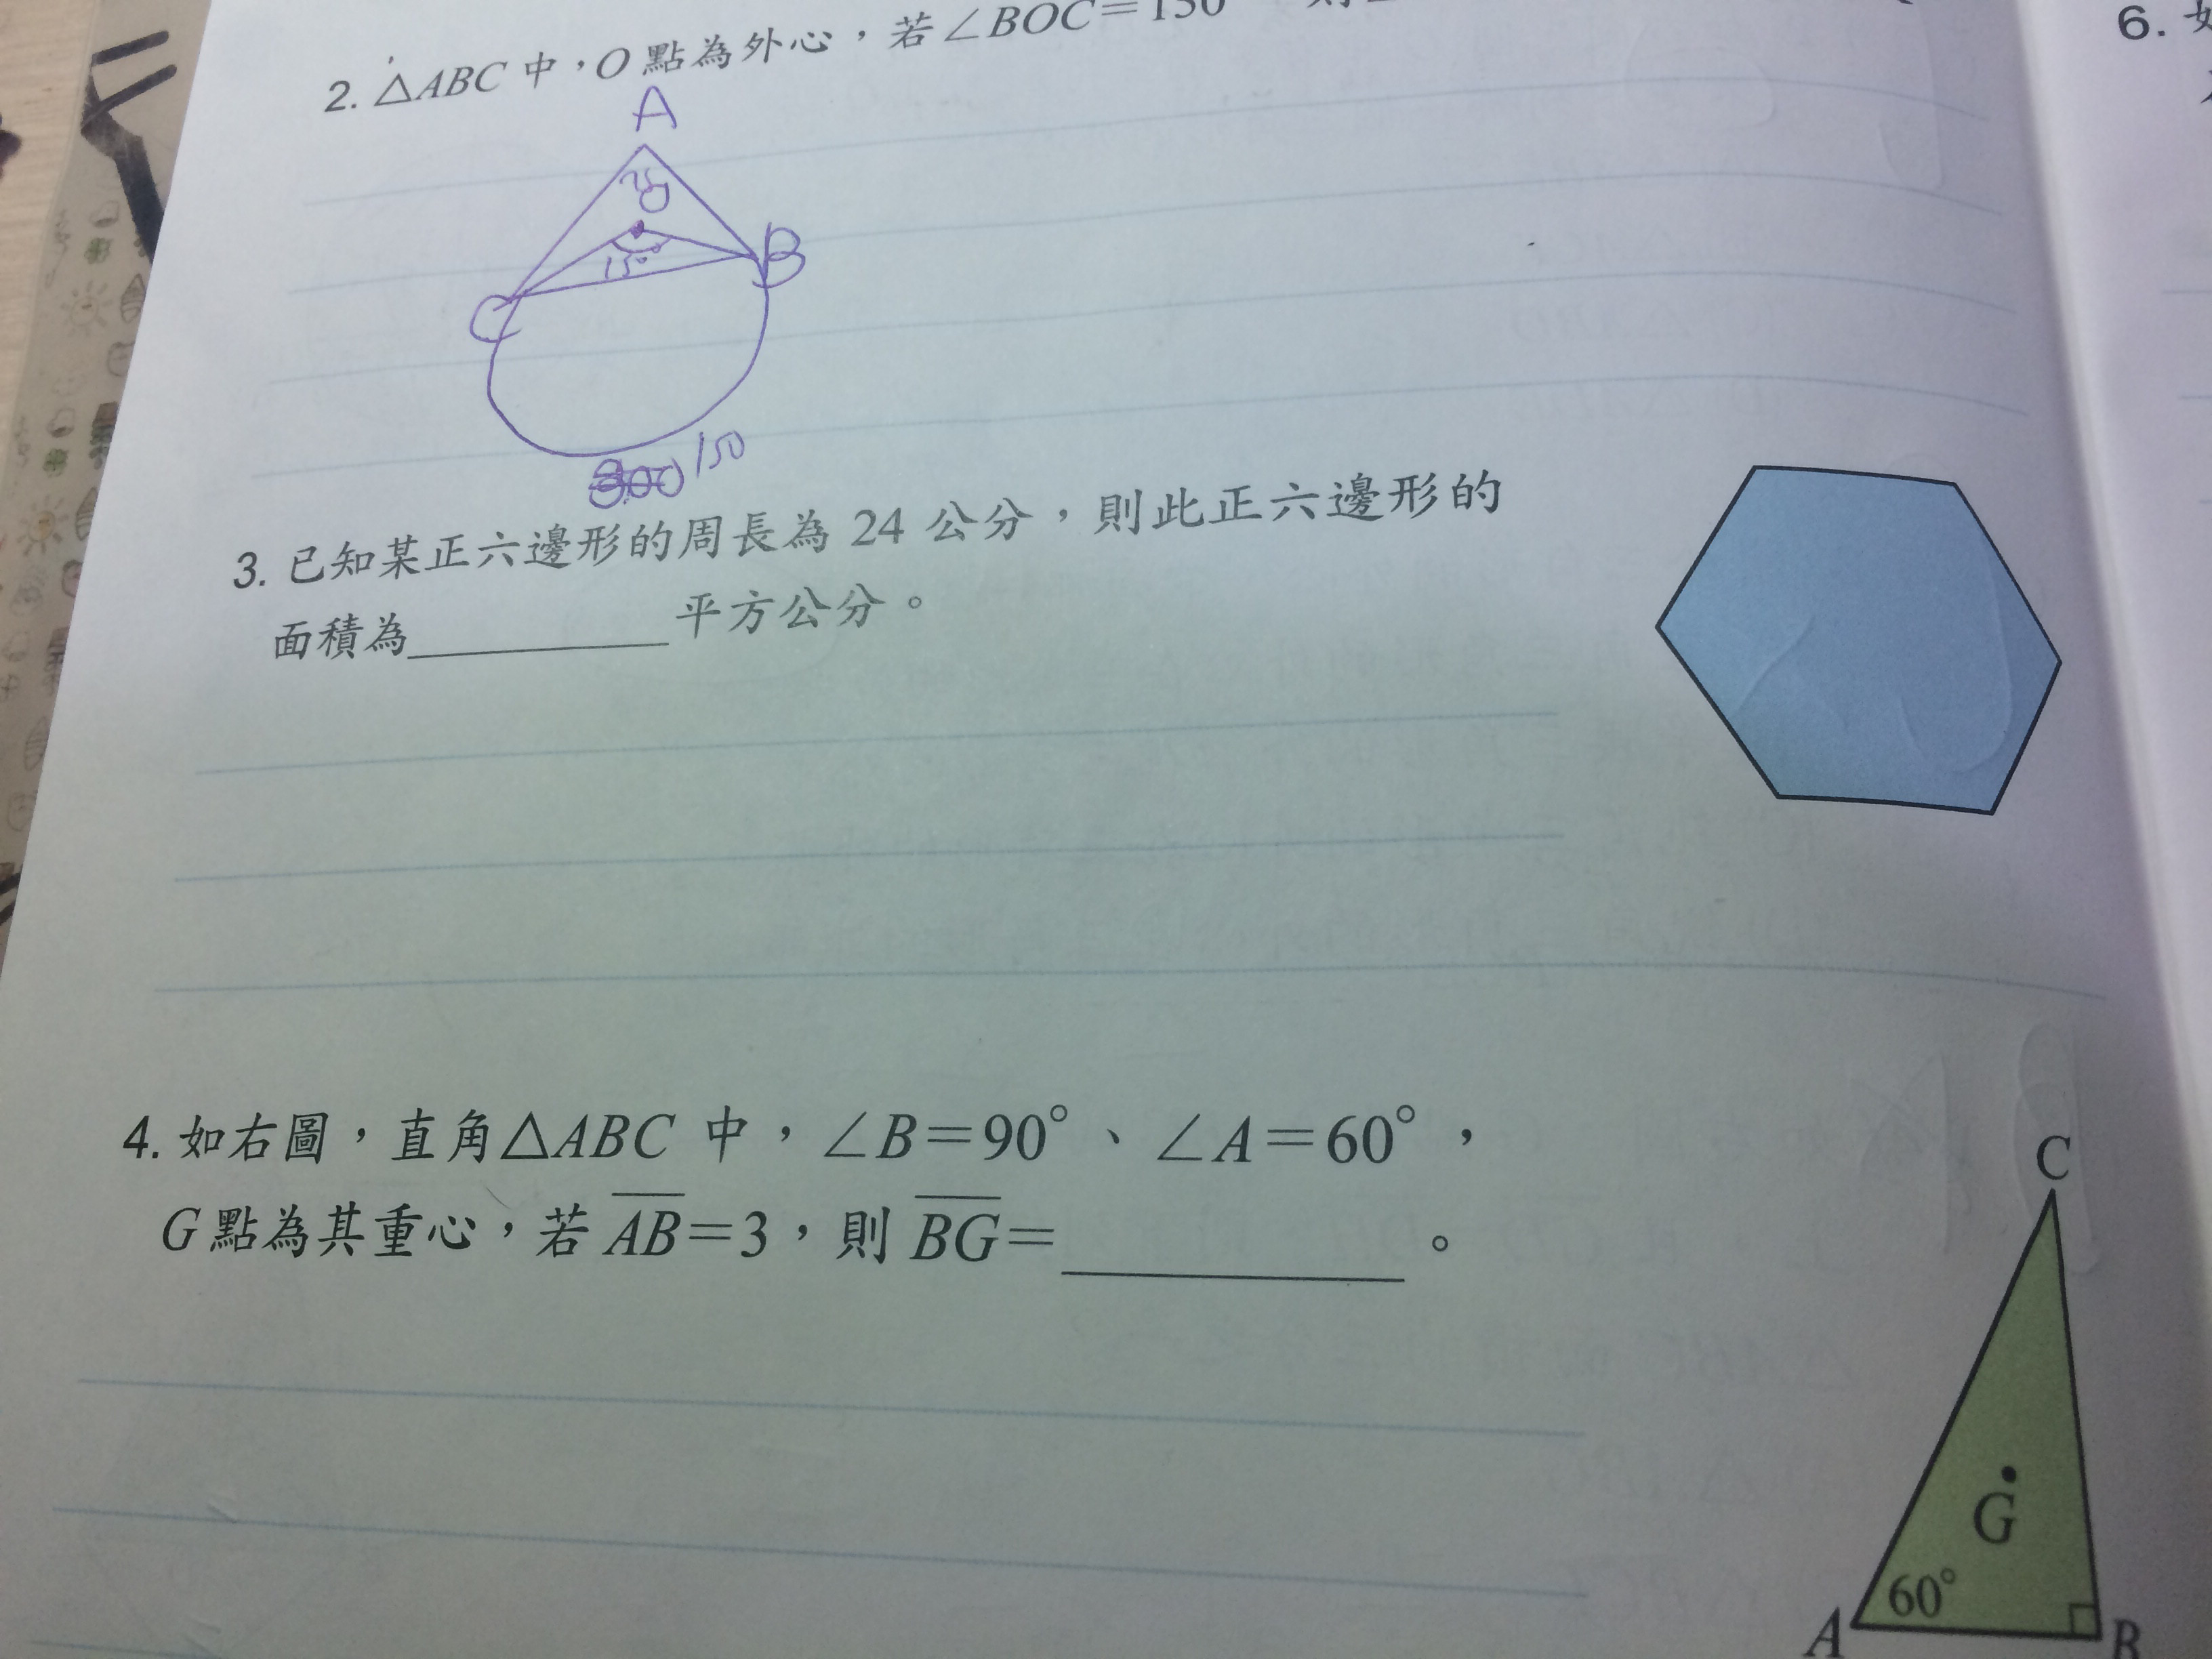 2. △ABC 中，O 點為外心，若∠BOC=150
A
B
C
150
3. 已知某正六邊形的周長為 24 公分，則此正六邊形的
面積為________平方公分。
4. 如右圖，直角△ABC 中，∠B=90°、∠A=60°，
G點為其重心，若 AB=3，則 BG=________。
C
G
60°
A
B
6.